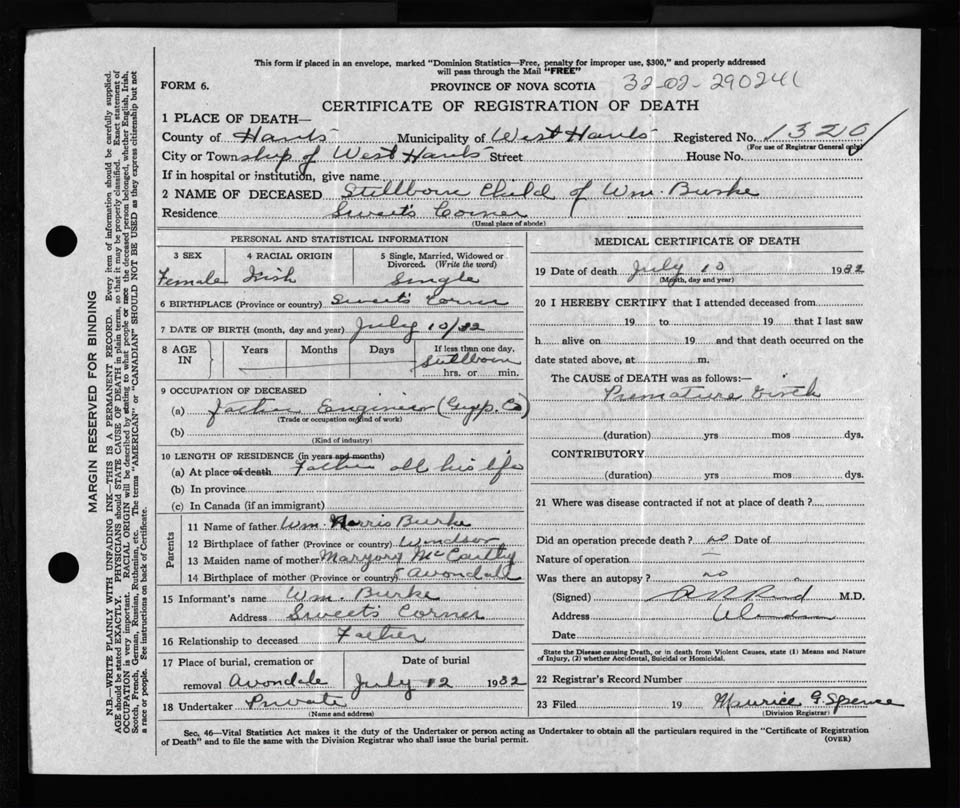 This form if placed in an envelope, marked "Dominion Statistics—Free, penalty for improper use, $300," and properly addressed
will pass through the Mail "FREE"
FORM 6.
PROVINCE OF NOVA SCOTIA 32-02-290241
CERTIFICATE OF REGISTRATION OF DEATH
1 PLACE OF DEATH—
County of Hants Municipality of West Hants Registered No. 1320
(For use of Registrar General only)
City or Township of West Hants Street House No.
If in hospital or institution, give name
2 NAME OF DECEASED Stillborn Child of Wm. Burke
Residence Sweet's Corner
(Usual place of abode)
PERSONAL AND STATISTICAL INFORMATION
3 SEX 4 RACIAL ORIGIN 5 Single, Married, Widowed or Divorced. (Write the word)
Female Irish Single
6 BIRTHPLACE (Province or country) Sweet's Corner
7 DATE OF BIRTH (month, day and year) July 10/32
8 AGE IN Years Months Days If less than one day,
Stillborn
hrs. or min.
9 OCCUPATION OF DECEASED
(a) Father Engineer (Gyp. Co)
(Trade or occupation or kind of work)
(b)
(Kind of industry)
10 LENGTH OF RESIDENCE (in years and months)
(a) At place of death Father all his life
(b) In province
(c) In Canada (if an immigrant)
Parents
11 Name of father Wm. Harris Burke
12 Birthplace of father (Province or country) Windsor
13 Maiden name of mother Margory McCarthy
14 Birthplace of mother (Province or country) Avondale
15 Informant's name Wm. Burke
Address Sweets Corner
16 Relationship to deceased Father
17 Place of burial, cremation or removal Avondale Date of burial July 12 1932
18 Undertaker Private
(Name and address)
MEDICAL CERTIFICATE OF DEATH
19 Date of death July 10 1932
(Month, day and year)
20 I HEREBY CERTIFY that I attended deceased from
19 to 19 that I last saw
h alive on 19 and that death occurred on the
date stated above, at m.
The CAUSE of DEATH was as follows:—
Premature birth
(duration) yrs mos dys.
CONTRIBUTORY
(duration) yrs mos dys.
21 Where was disease contracted if not at place of death?
Did an operation precede death? no Date of
Nature of operation —
Was there an autopsy? no
(Signed) M.D.
Address
Date
State the Disease causing Death, or in death from Violent Causes, state (1) Means and Nature
of Injury, (2) whether Accidental, Suicidal or Homicidal.
22 Registrar's Record Number
23 Filed 19 Maurice G. Spence
(Division Registrar)
Sec. 46—Vital Statistics Act makes it the duty of the Undertaker or person acting as Undertaker to obtain all the particulars required in the "Certificate of Registration
of Death" and to file the same with the Division Registrar who shall issue the burial permit.
(OVER)
MARGIN RESERVED FOR BINDING
N.B.—WRITE PLAINLY WITH UNFADING INK—THIS IS A PERMANENT RECORD. Every item of information should be carefully supplied.
AGE should be stated EXACTLY. PHYSICIANS should STATE CAUSE OF DEATH in plain terms, so that it may be properly classified. Exact statement of
OCCUPATION is very important. RACIAL ORIGIN will be described by stating to what people or race the deceased person belonged, whether English, Irish,
Scotch, French, German, Russian, Ruthenian, etc. The terms "AMERICAN" or "CANADIAN" SHOULD NOT BE USED as they express citizenship but not
a race or people. See instructions on back of Certificate.